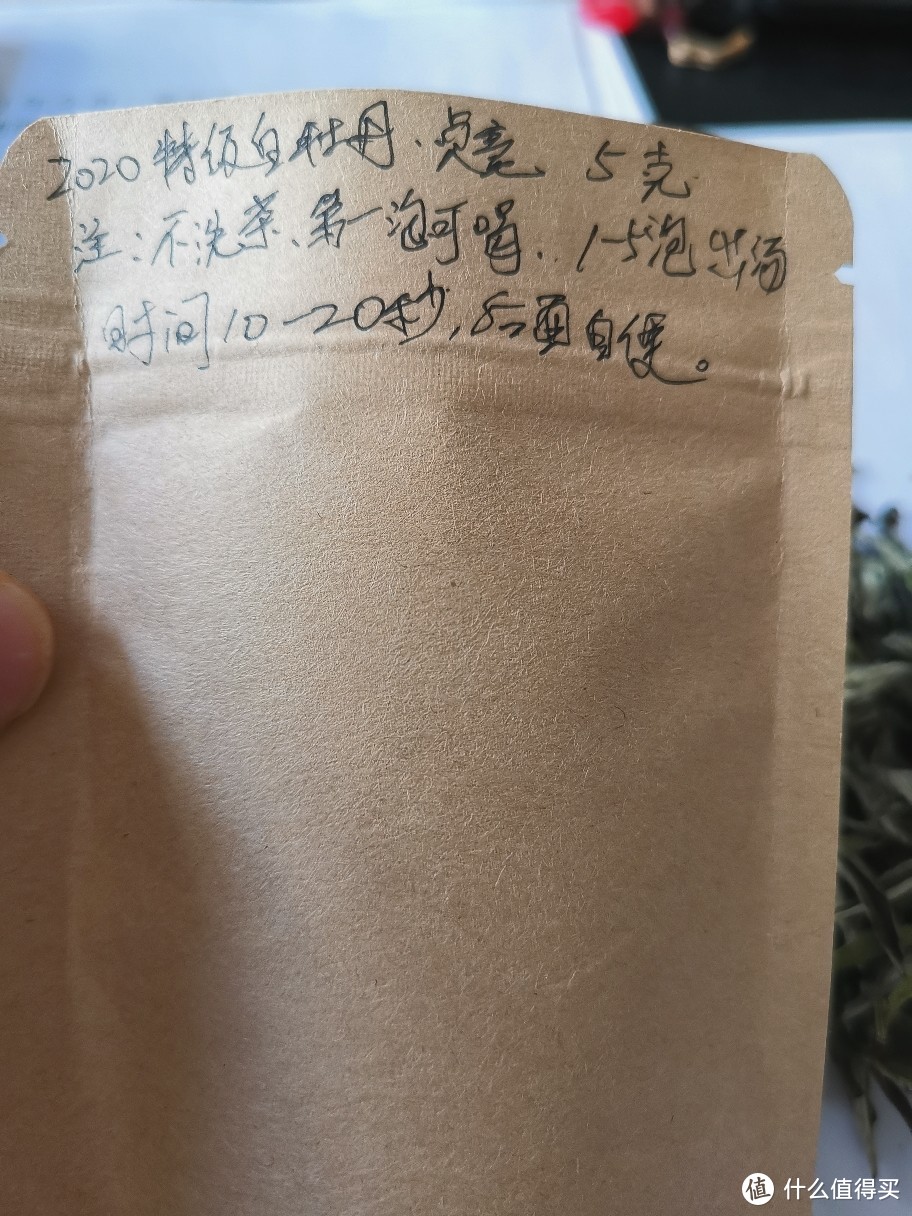 2020特级白牡丹、点亮 5克
注:不洗茶、第一泡可喝、1-5泡出汤
时间10-20秒,后面自便。
值 什么值得买